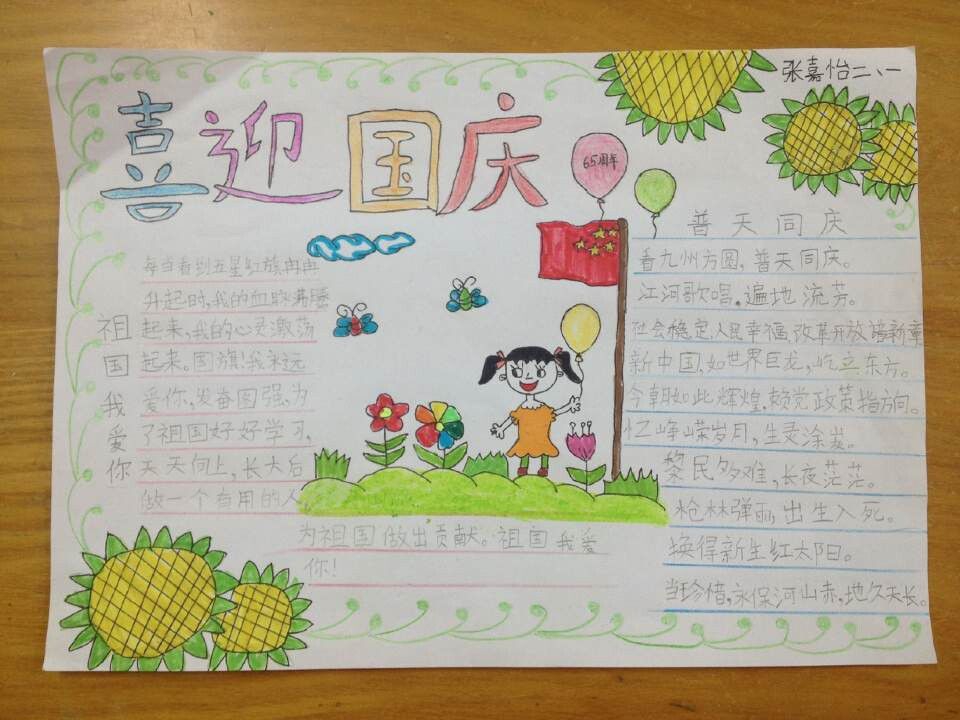 张嘉怡二、一
喜迎国庆
65周年
祖国我爱你
每当看到五星红旗冉冉
升起时,我的血脉沸腾
起来,我的心灵激荡
起来。国旗!我永远
爱你,发奋图强,为
了祖国好好学习,
天天向上,长大后
做一个有用的人,
为祖国做出贡献。祖国我爱
你!
普天同庆
看九州方圆,普天同庆。
江河歌唱。遍地流芳。
社会稳定,人民幸福,改革开放谱新章
新中国,如世界巨龙,屹立东方。
今朝如此辉煌,赖党政策指方向。
忆峥嵘岁月,生灵涂炭。
黎民多难,长夜茫茫。
枪林弹雨,出生入死。
换得新生红太阳。
当珍惜,永保河山赤,地久天长。